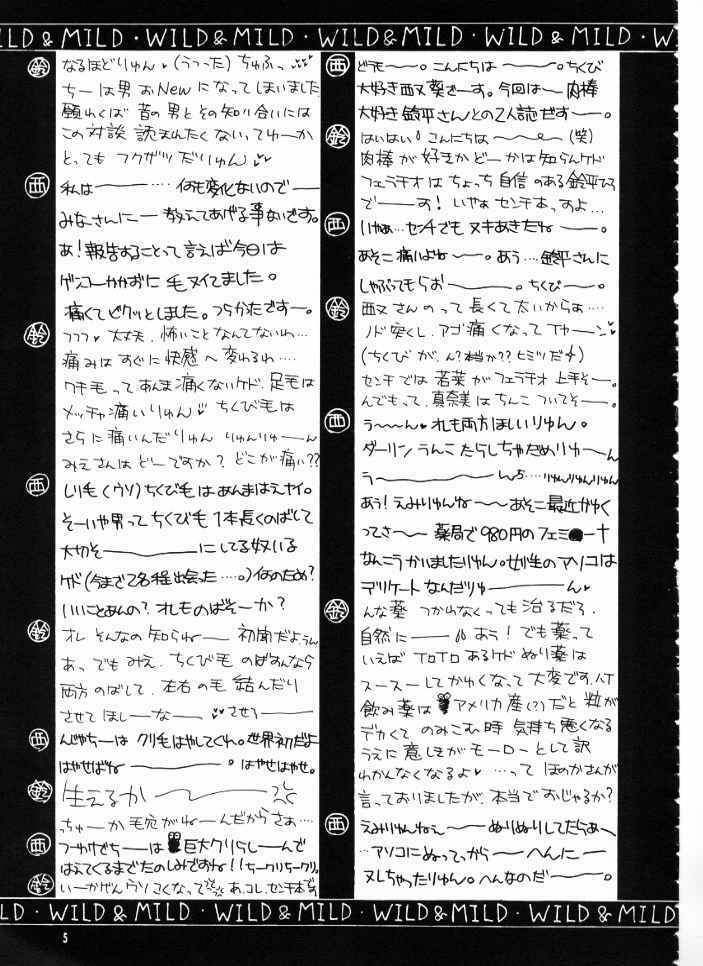 WILD & MILD · WILD & MILD · WILD & MILD · WILD & MILD
西 どうも〜〜。こんにちは〜〜〜。ちくび
大好き西又葵でーす。今回は〜肉棒
大好き鈴平さんとの2人誌です〜。
鈴 はいはい こんにちは〜〜〜(笑)
肉棒が好きかどーかは知らんケド
フェラチオはちょっち自信のある鈴平ひろ
でーーす! いやぁ センチあっすよ…
西 いやぁ…センチでもヌキあきたね〜〜。
あそこ痛いよね〜〜。あう…鈴平さんに
しゃぶってもらお〜〜〜。ちくび〜〜。
鈴 西又さんのって長くて太いからぁ…
ノド突くし、アゴ痛くなってイヤ〜ン
(ちくびが、ん?本当か??ヒミツだ)
センチでは若菜がフェラチオ上手そー。
んでもって、真奈美はちんこついてそー。
西 う〜〜ん♥ オレも両方ほしいりゅん。
ダーリンうんこたらしちゃだめりゅ〜ん
う〜〜〜〜〜 りゅんりゅんりゅん
あう! えみりゅんね〜〜あそこ最近かゆく
ってさ〜〜 薬局で980円のフェミ●ート
なんこうかいましたりゅん。女性のアソコは
デリケートなんだりゅ〜〜〜ん♥
鈴 んな薬 つかわなくっても治るだろ、
自然に〜〜 あう! でも薬って
いえば トロトロあるケド ぬり薬は
スースーしてかゆくなって大変です、ハイ
飲み薬は アメリカ産(?)だと粒が
デカくて のみこむ時 気持ち悪くなる
うえに意しきがモーローとして訳
わかんなくなるよ♥ …って ほのかさんが
言っておりましたが、本当でおじゃるか?
西 えみりゅんねぇ〜〜ぬりぬりしてたらぁ〜
…アソコにぬってっから〜〜へんに〜
ヌレちゃったりゅん。へんなのだ〜〜〜。
鈴 なるほどりゅん♥(うつった)ちゅふっ
ちーは男おNewになってしまいました
願わくば 昔の男とその知り合いには
この対談 読まれたくないってゆーか
とっても フクザツだりゅん
西 私は〜〜…何も変化ないので〜
みなさんに〜教えてあげる事ないです。
あ!報告することって言えば今日は
ゲンコーかかずに毛ヌイてました。
痛くてビクッとしました。つらかたです〜。
鈴 フフフ♥ 大丈夫、怖いことなんてないわ…
痛みはすぐに快感へ変わるわ…
ワキ毛ってあんま痛くないケド、足毛は
メッチャ痛いりゅん ちくび毛は
さらに痛いんだりゅん りゅんりゅ〜ん
みえさんはどーですか? どこが痛い??
西 しり毛(ウソ)ちくび毛はあんまはえナイ。
そーいや男ってちくび毛1本長くのばして
大切そ〜〜〜〜にしてる奴いる
ケド(今まで2名程出会った…。)何のため?
いいことあんの? オレものばそーか?
鈴 オレ そんなの知らね〜 初聞だよぅ
あっ、でもみえ、ちくび毛のばすんなら
両方のばして、左右の毛結んだり
させてほしーなー、させろ〜〜
西 んじゃちーは クリ毛はやしてくれ。世界初だよ
はやせばね〜〜〜〜。はやせはやせ。
鈴 生えるか〜〜〜〜
っちゅーか毛穴がねーんだからさぁ…
西 つーわけでちーは 巨大クリらしーんで
はえてくるまでたのしみですね!!ちークリちークリ。
鈴 いーかげんウソこくなって あ、コレ、センチ本
WILD & MILD · WILD & MILD · WILD & MILD · WILD & MILD
5